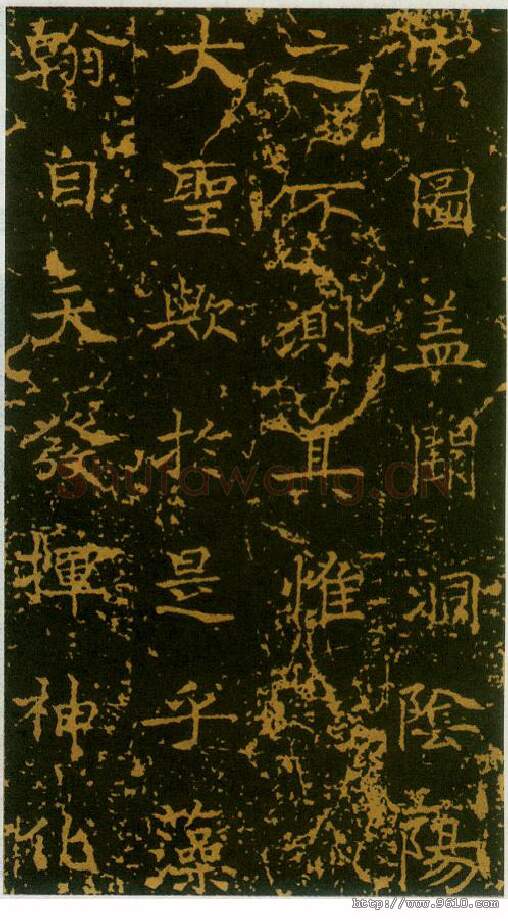 圖盖開洞陰陽
之不測其惟
大聖歟於是乎藻
翰自天發揮神化
shufawang.CN
http://www.9610.com